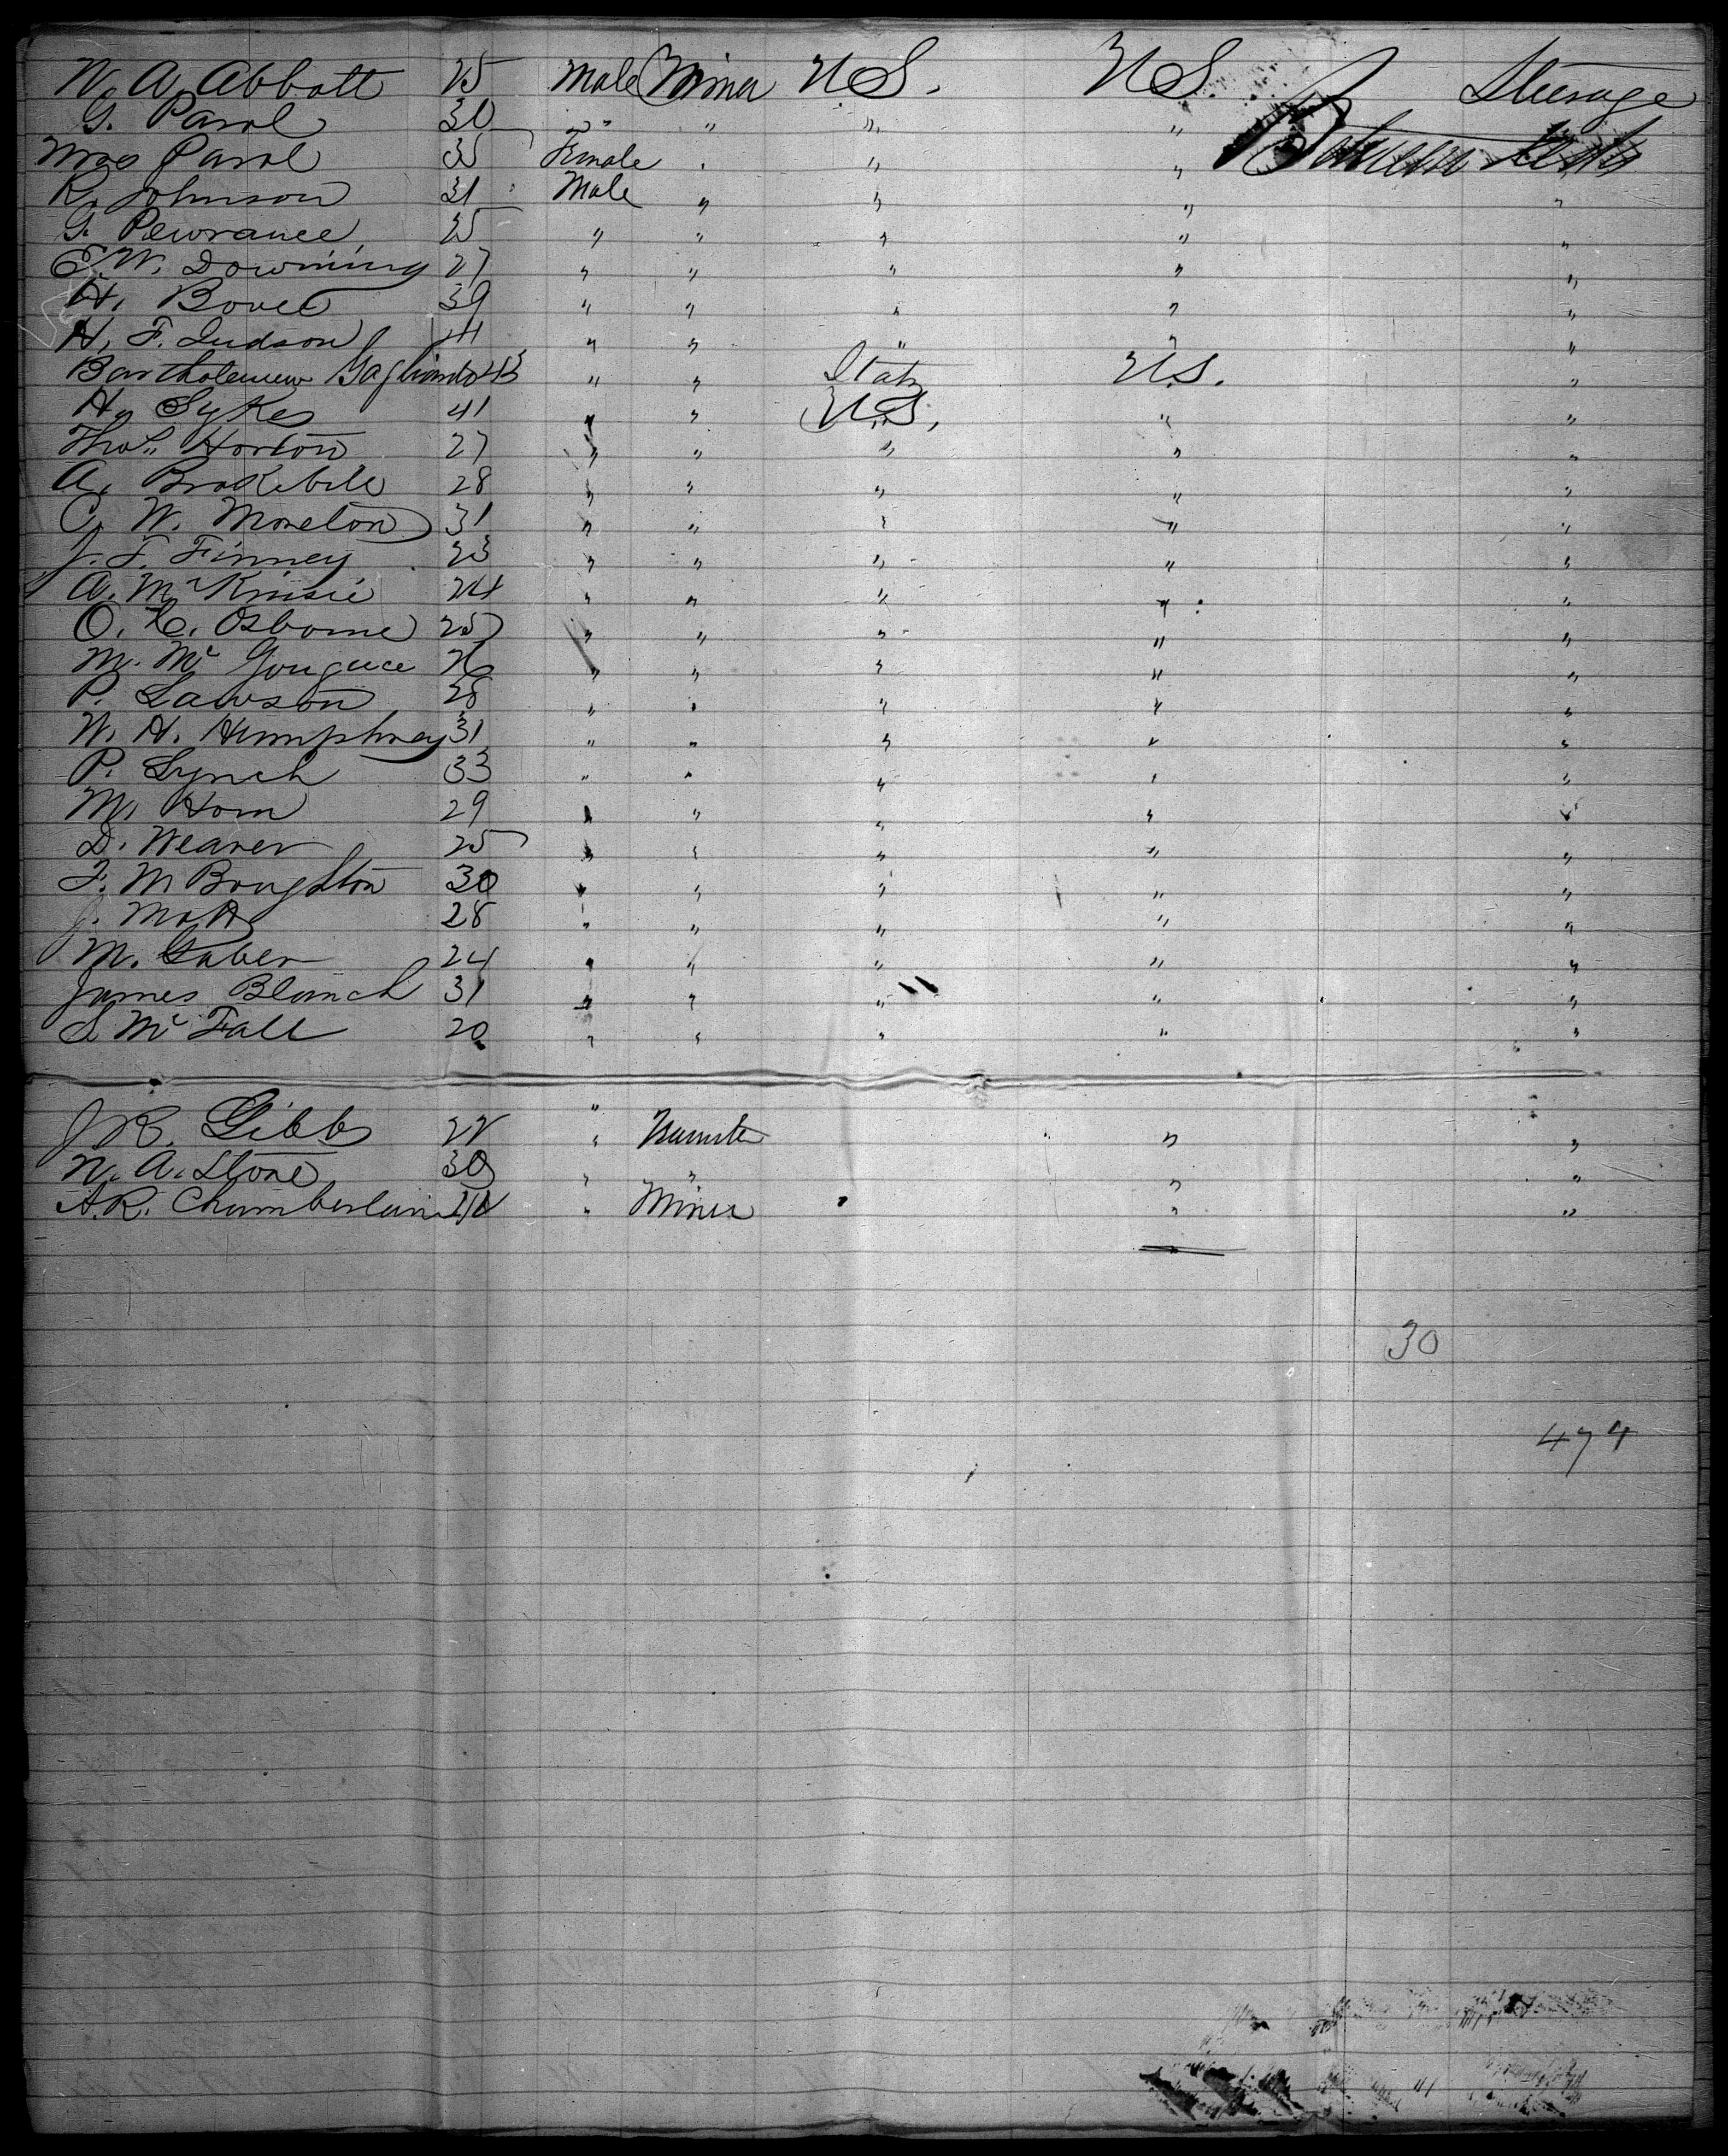 W. A. Abbott 25 Male Miner U.S. U.S. Steerage
G. Parol 30 " " " "
Mrs Parol 35 Female " " "
R. Johnson 31 Male " " " "
G. Pewrance 25 " " " " "
E. W. Downing 27 " " " " "
H. Bovee 39 " " " " "
H. F. Judson 41 " " " " "
Bartholemew Gagliardo 43 " " Italy U.S. "
H. Sykes 41 " " U.S. " "
Thos. Horton 27 " " " " "
A. Brakebile 28 " " " " "
C. W. Moreton 31 " " " " "
J. T. Finney 23 " " " " "
A. McKinsie 24 " " " " "
O. C. Osborne 25 " " " " "
M. Mc 26 " " " " "
P. Lawson 28 " " " " "
W. H. Humphrey 31 " " " " "
P. Lynch 33 " " " " "
M. Horn 29 " " " " "
D. Weaver 25 " " " " "
F. M Boughton 30 " " " " "
J. Mott 28 " " " " "
M. Gaber 24 " " " " "
James Blanch 31 " " " " "
S. McFall 20 " " " " "
J R. Gibbs 22 " " "
N. A. Stone 30 " " " "
A. R. Chamberlain " Miner " " "
30
474